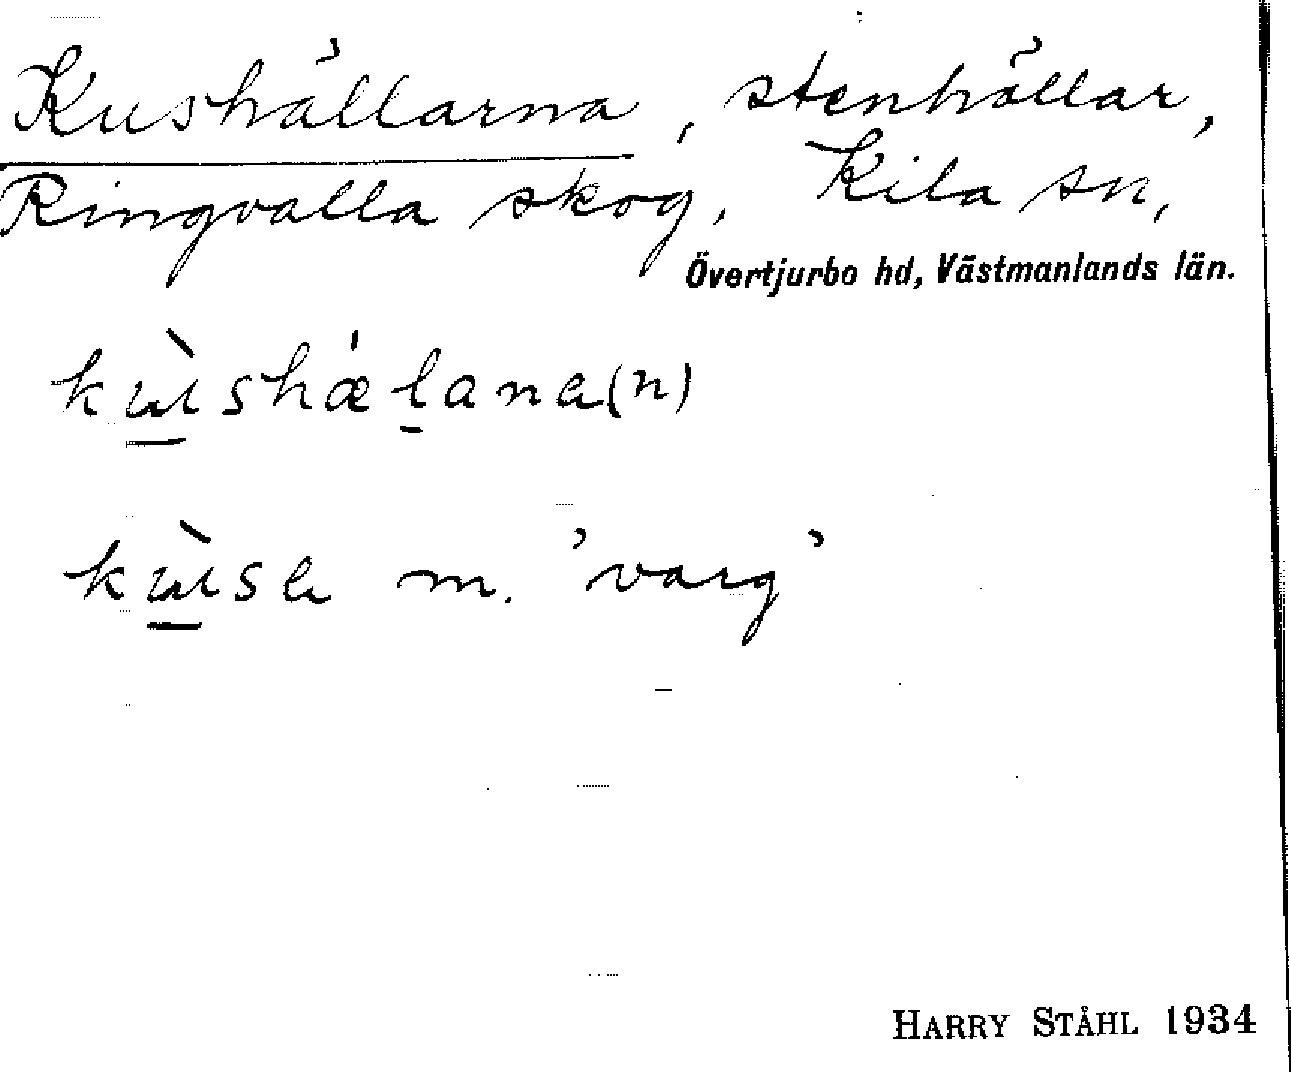 Kushällarna, stenhällar,
Ringvalla skog, Kila sn,
Övertjurbo hd, Västmanlands län.
kɯ̀shæ̍l̠ana(n)
kɯ̀sa m. 'varg'
HARRY STÅHL 1934